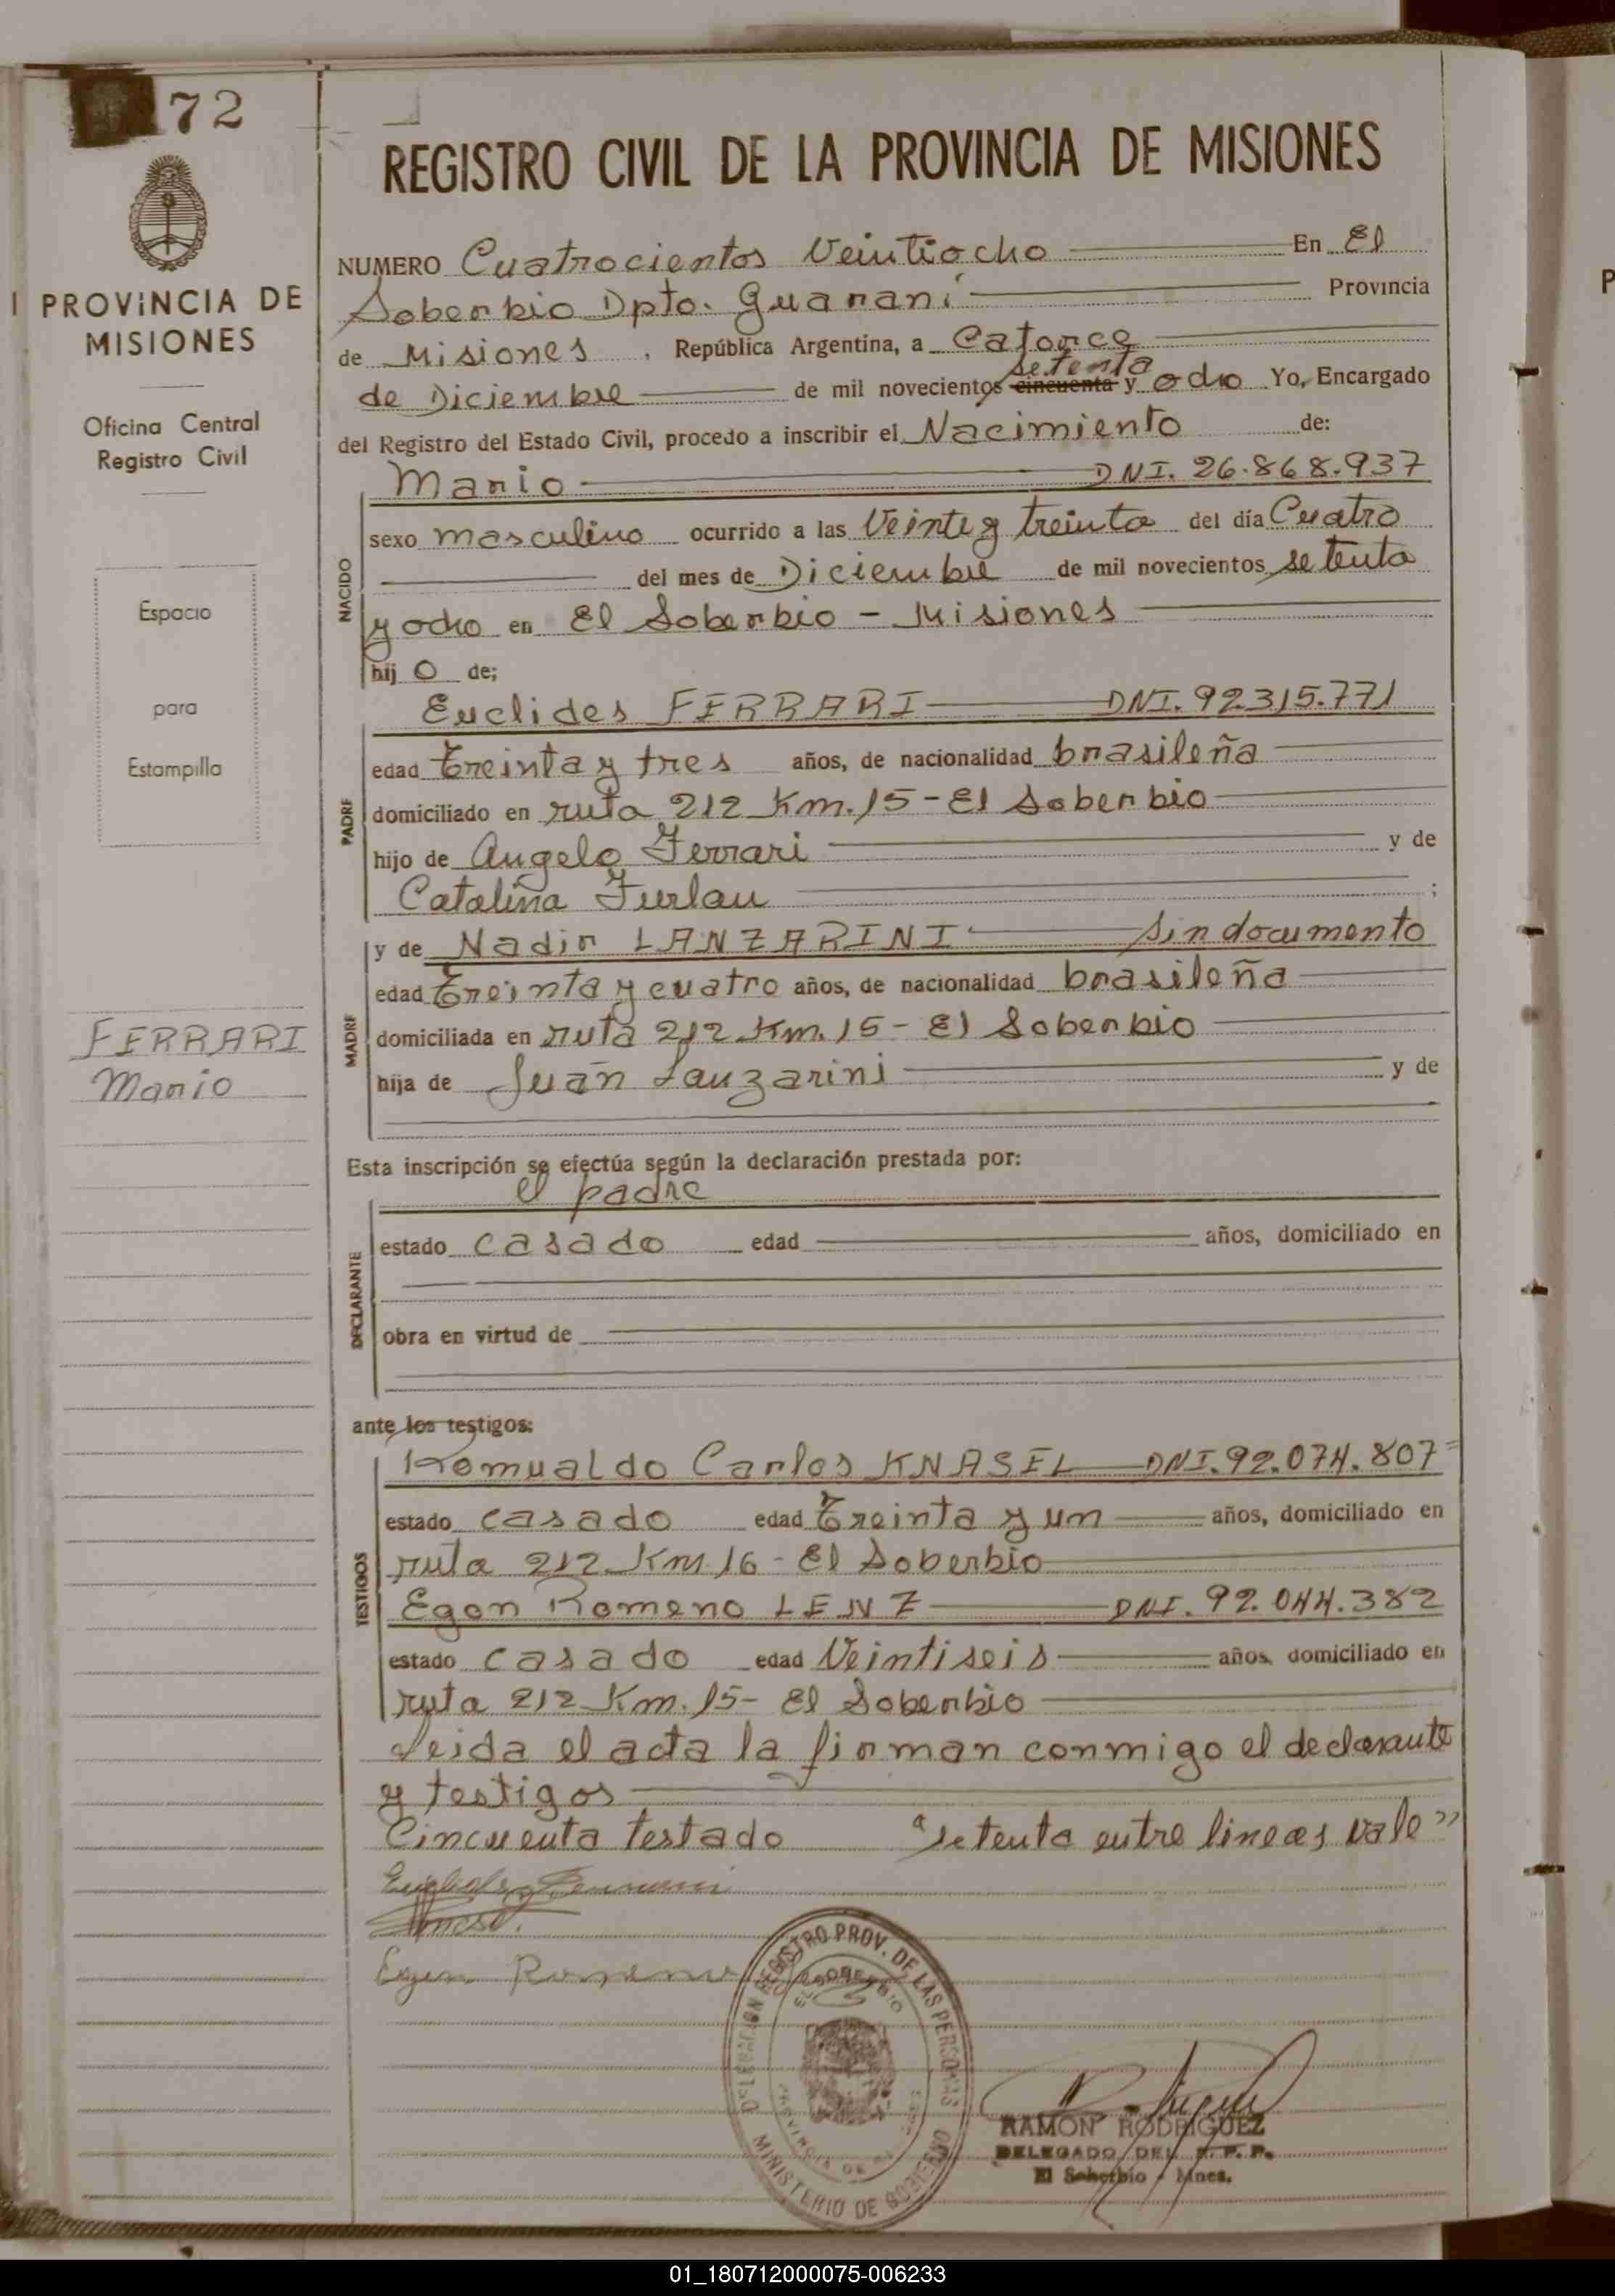 72
REGISTRO CIVIL DE LA PROVINCIA DE MISIONES
PROVINCIA DE
MISIONES
Oficina Central
Registro Civil
Espacio
para
Estampilla
FERRARI
Mario
NUMERO Cuatrocientos Veintiocho En El
Soberbio Dpto. Guaraní Provincia
de Misiones, República Argentina, a Catorce
setenta
de Diciembre de mil novecientos cincuenta y ocho Yo, Encargado
del Registro del Estado Civil, procedo a inscribir el Nacimiento de:
Mario DNI. 26.868.937
NACIDO
sexo masculino ocurrido a las Veinte y treinta del día Cuatro
del mes de Diciembre de mil novecientos setenta
y ocho en El Soberbio - Misiones
hij o de;
Euclides FERRARI DNI. 92.315.771
PADRE
edad Treinta y tres años, de nacionalidad brasileña
domiciliado en ruta 212 Km. 15 - El Soberbio
hijo de Angelo Ferrari y de
Catalina Furlan ;
y de Nadir LANZARINI Sin documento
MADRE
edad Treinta y cuatro años, de nacionalidad brasileña
domiciliada en ruta 212 Km. 15 - El Soberbio
hija de Juan Lanzarini y de
Esta inscripción se efectúa según la declaración prestada por:
el padre
DECLARANTE
estado casado edad años, domiciliado en
obra en virtud de
ante los testigos:
Romualdo Carlos KNASEL DNI. 92.074.807
TESTIGOS
estado casado edad Treinta y un años, domiciliado en
ruta 212 Km 16 - El Soberbio
Egon Romeno LENZ DNI. 92.044.382
estado casado edad Veintiseis años, domiciliado en
ruta 212 Km. 15 - El Soberbio
Leida el acta la firman conmigo el declarante
y testigos
Cincuenta testado "setenta entre lineas vale"
Egon Romeno
DELEGACION REGISTRO PROV. DE LAS PERSONAS
EL SOBERBIO
MINISTERIO DE GOBIERNO
RAMON RODRIGUEZ
DELEGADO DEL R. P. P.
El Soberbio - Mnes.
01_180712000075-006233